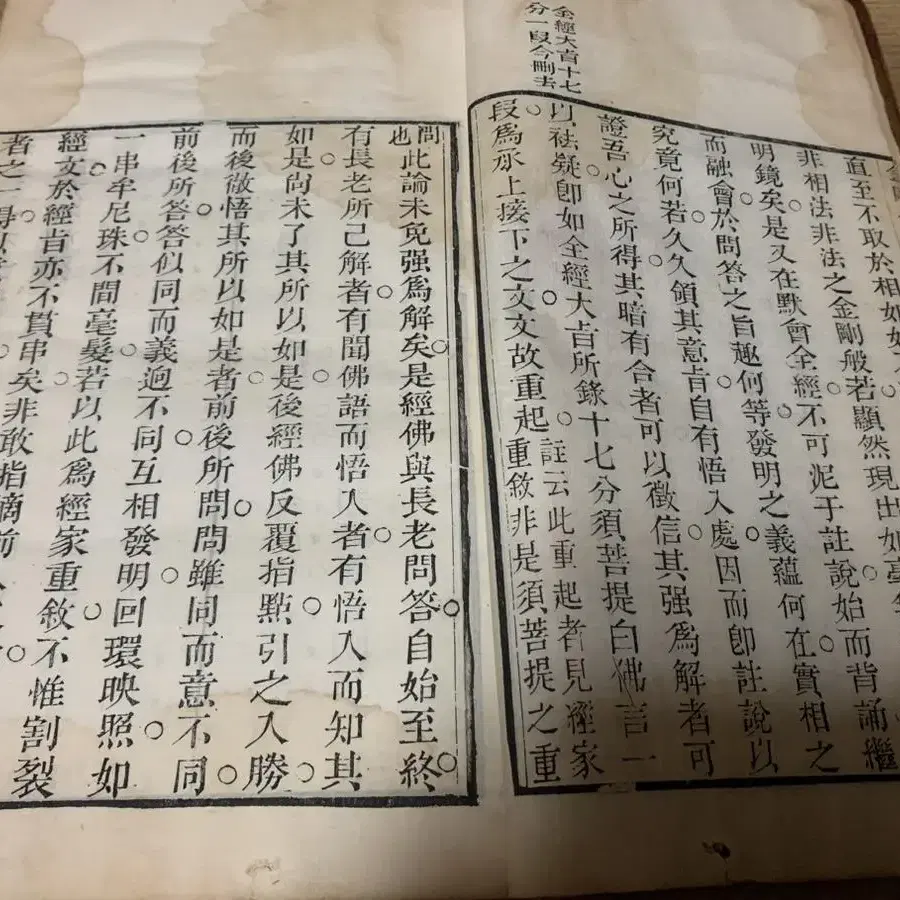 直至不取於相如如
非相法非法之金剛般若顯然現出如臺
明鏡矣是又在默會全經不可泥于註說始而背誦繼
而融會於問答之旨趣何等發明之義蘊何在實相之
究竟何若久久領其意旨自有悟入處因而卽註說以
證吾心之所得其暗有合者可以徵信其强爲解者可
以祛疑卽如全經大旨所錄十七分須菩提白佛言一
註云此重起者見經家
段爲承上接下之文文故重起重敘非是須菩提之重
全經大旨十七
分一段今刪去
問此論未免强爲解矣是經佛與長老問答自始至終
也
有長老所己解者有聞佛語而悟入者有悟入而知其
如是尚未了其所以如是後經佛反覆指點引之入勝
而後徹悟其所以如是者前後所問問雖同而意不同
前後所答答似同而義迥不同互相發明回環映照如
一串牟尼珠不間毫髮若以此爲經家重敘不惟割裂
經文於經旨亦不貫串矣非敢指摘前
者之一得